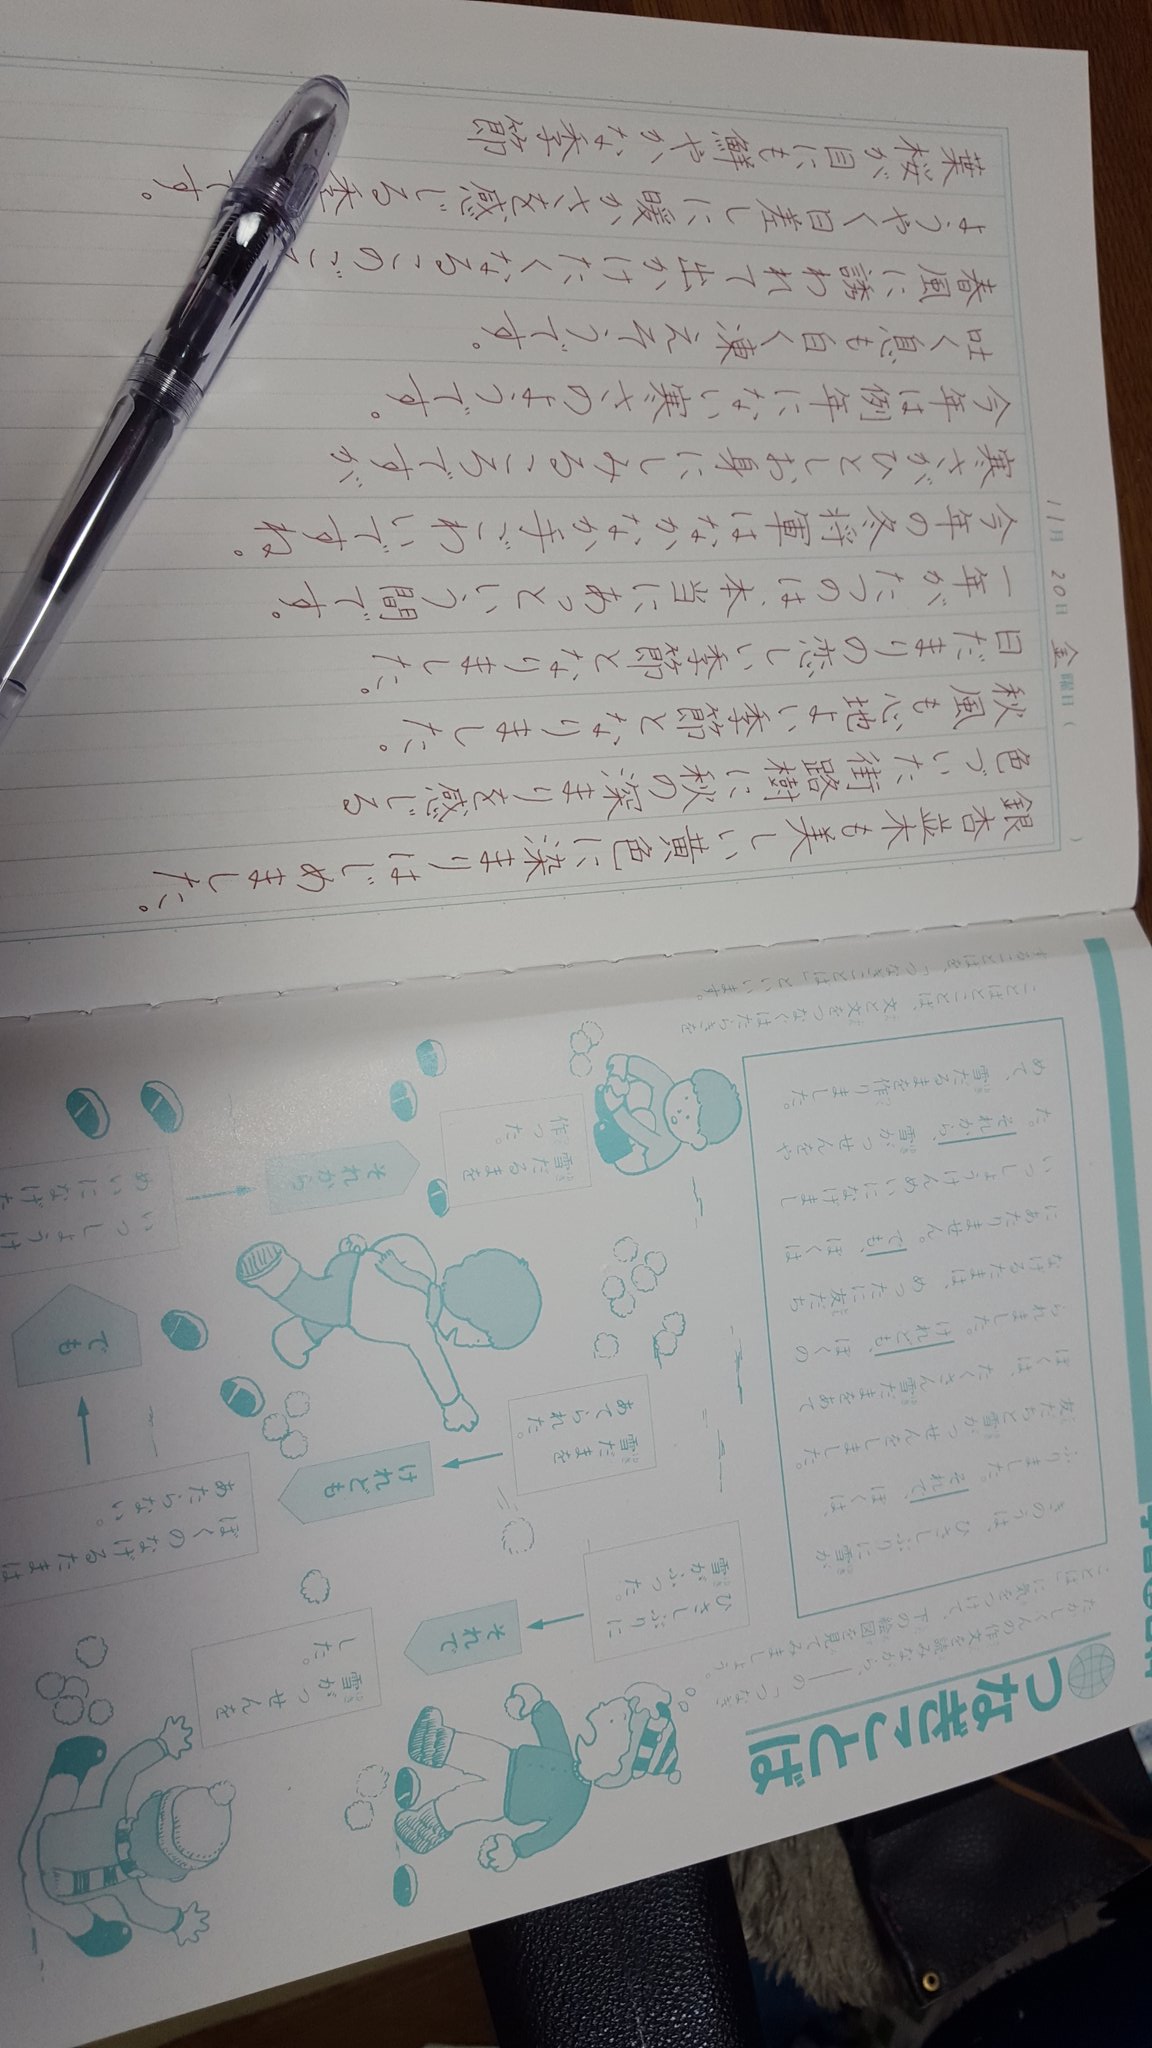 つなぎことば
たかしくんの作文を読みながら、――の「つなぎ
ことば」に気をつけて、下の絵図を見てみましょう。
きのうは、ひさしぶりに雪が
ふりました。それで、ぼくは、
友だちと雪がっせんをしました。
ぼくは、たくさん雪だまをあて
られました。けれども、ぼくの
なげるたまは、めったに友だち
にあたりません。でも、ぼくは
いっしょうけんめいになげまし
た。それから、雪がっせんをや
めて、雪だるまを作りました。
ことばとことば、文と文をつなぐはたらきを
することばを、「つなぎことば」といいます。
ひさしぶりに
雪がふった。
それで
雪がっせんを
した。
雪だまを
あてられた。
けれども
ぼくのなげるたまは
あたらない。
でも
いっしょうけ
めいになげた
それから
雪だるまを
作った。
11月 20日 金曜日（ ）
銀杏並木も美しい黄色に染まりはじめました。
色づいた街路樹に秋の深まりを感じる
秋風も心地よい季節となりました。
日だまりの恋しい季節となりました。
一年がたつのは、本当にあっという間です。
今年の冬将軍はなかなか手ごわいですね。
寒さがひとしお身にしみるころですが
今年は例年にない寒さのようです。
吐く息も白く凍えそうです。
春風に誘われて出かけたくなるこのごろ
ようやく日差しに暖かさを感じる季 です。
葉桜が目にも鮮やかな季節